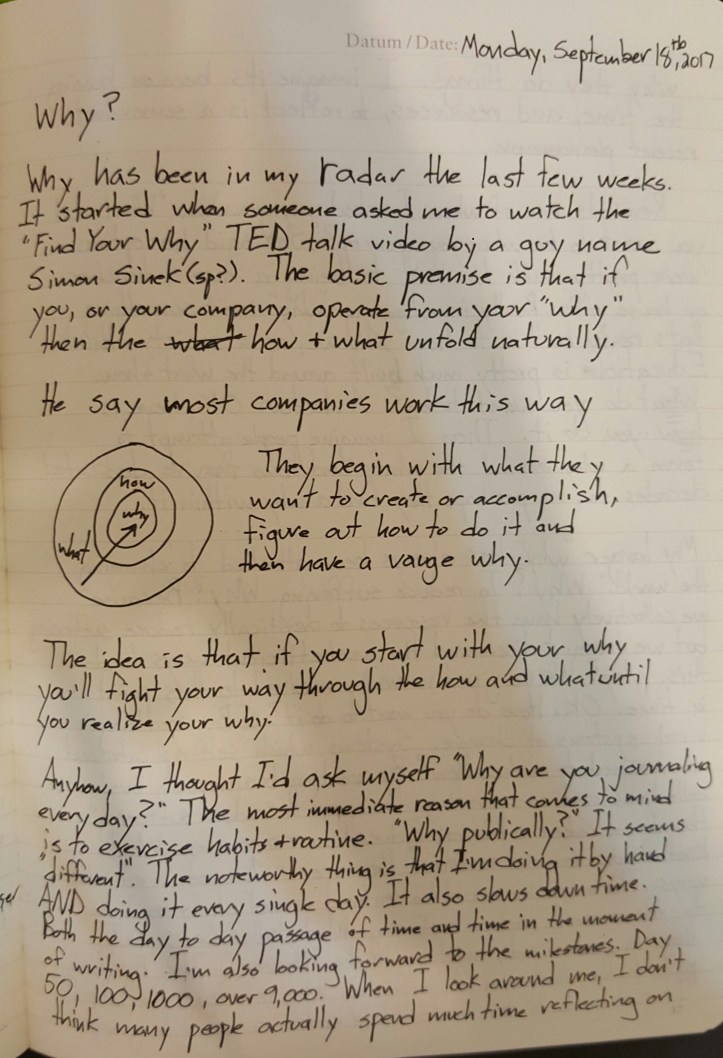 Datum / Date: Monday, September 18th, 2017
Why?
Why has been in my radar the last few weeks.
It started when someone asked me to watch the
"Find Your Why" TED talk video by a guy name
Simon Sinek (sp?). The basic premise is that if
you, or your company, operate from your "why"
then the what how + what unfold naturally.
He say most companies work this way
how
why
what
They begin with what they
want to create or accomplish,
figure out how to do it and
then have a vauge why.
The idea is that if you start with your why
you'll fight your way through the how and what until
you realize your why.
Anyhow, I thought I'd ask myself "Why are you journaling
every day?" The most immediate reason that comes to mind
is to exercise habits + routine. "Why publically?" It seems
"different". The noteworthy thing is that I'm doing it by hand
AND doing it every single day. It also slows down time.
Both the day to day passage of time and time in the moment
of writing. I'm also looking forward to the milestones. Day
50, 100, 1000, over 9,000. When I look around me, I don't
think many people actually spend much time reflecting on